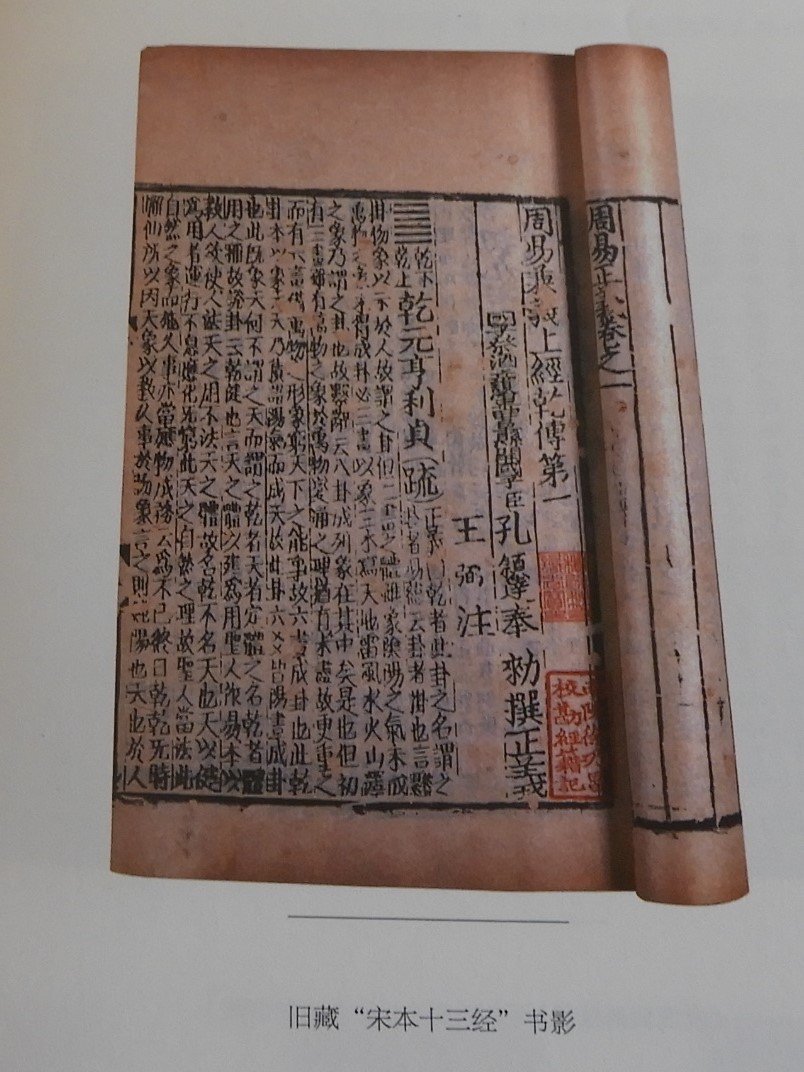 周易正義卷之一
周易兼義上經乾傳第一
國子祭酒上護軍曲阜縣開國子臣孔穎達奉 勑撰正義
王弼注
䷀乾下乾上乾元亨利貞疏正義曰乾者此卦之名謂之
卦者易緯云卦者掛也言懸
掛物象以示於人故謂之卦但二畫之體雖象陰陽之氣未成
萬物之象未得成卦必三畫以象三才寫天地雷風水火山澤
之象乃謂之卦也故繫辭云八卦成列象在其中矣是也但初
有三畫雖有萬物之象於萬物變通之理猶有未盡故更重之
而有六畫備萬物之形象窮天下之能事故六畫成卦也此乾
卦本以象天天乃積諸陽氣而成天故此卦六爻皆陽畫成卦
也此既象天何不謂之天而謂之乾者天者定體之名乾者體
用之稱故說卦云乾健也言天之體以健為用聖人作易本以
教人欲使人法天之用不法天之體故名乾不名天也天以健
為用者運行不息應化无窮此天之自然之理故聖人當法此
自然之象而施人事亦當應物成務云為不已終日乾乾无時
懈倦所以因天象以教人事於物象言之則純陽也天也於人
校勘經籍記
旧藏“宋本十三经”书影